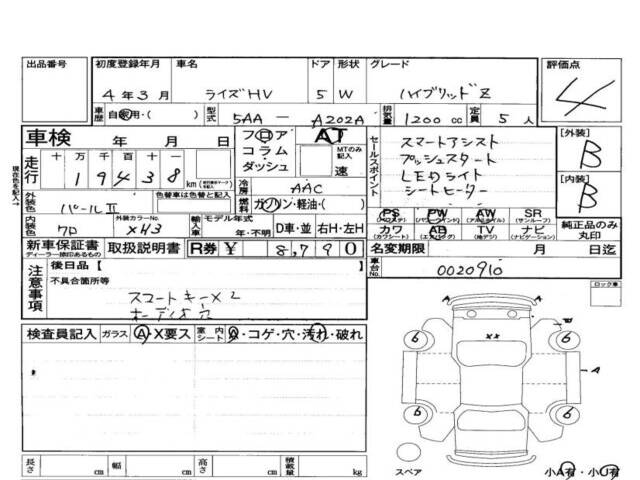 出品番号 初度登録年月 車名 ドア 形状 グレード 評価点
4年3月 ライズHV 5 W ハイブリッドZ 4
車歴 自家用・( ) 型式 5AA — A202A 排気量 1200cc 定員 5人
車検 年 月 日 フロア AT セールスポイント スマートアシスト [外装] B
コラム・ダッシュ MTのみ記入 速 プッシュスタート
走行 十 万 千 百 十 一 LEDライト [内装] B
1 9 4 3 8 km シートヒーター
現在色を記入→
冷房 AAC
外装色 パールⅡ 色替車は色替と記入 燃料 ガソリン・軽油・( ) PS PW AW SR (サンルーフ) 純正品のみ丸印
内装色 クロ 外装カラーNo. XH3 輸入車 モデル年式 年・不明 D車・並 右H・左H カワ (カワシート) AB (エアバッグ) TV (テレビ) ナビ (ナビゲーション)
新車保証書 ディーラー捺印あるもの 取扱説明書 R券 ¥ 8,790 名変期限 月 日迄
注意事項 後日品【 】 車台No. 0020910
不具合箇所等 ロック車
スマートキー×2
オーディオ穴
検査員記入 ガラス A・X要ス 室内シート ・コゲ・穴・汚れ・破れ
6 6 ×× A
6 6 B
長さ cm 幅 cm 高さ cm 積載量 kg スペア 小A有・小U有